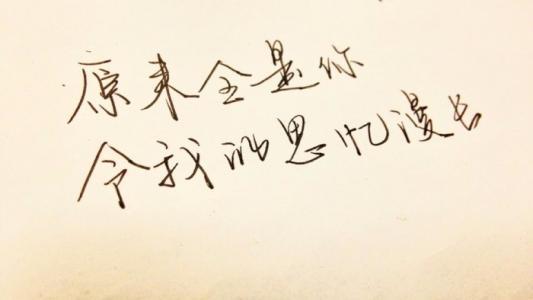 原来全是你
令我的思忆漫长